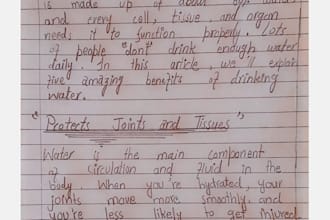 is made up of about
and every cell, tissue, and organ
needs it to function properly. Lots
of people "dont" drink enough water
daily. In this article, we'll explore
five amazing benefits of drinking
water.
"Protects Joints and Tissues"
Water is the main component
of circulation and fluid in the
body. When you're hydrated, your
joints move more smoothly, and
you're less likely to get injured